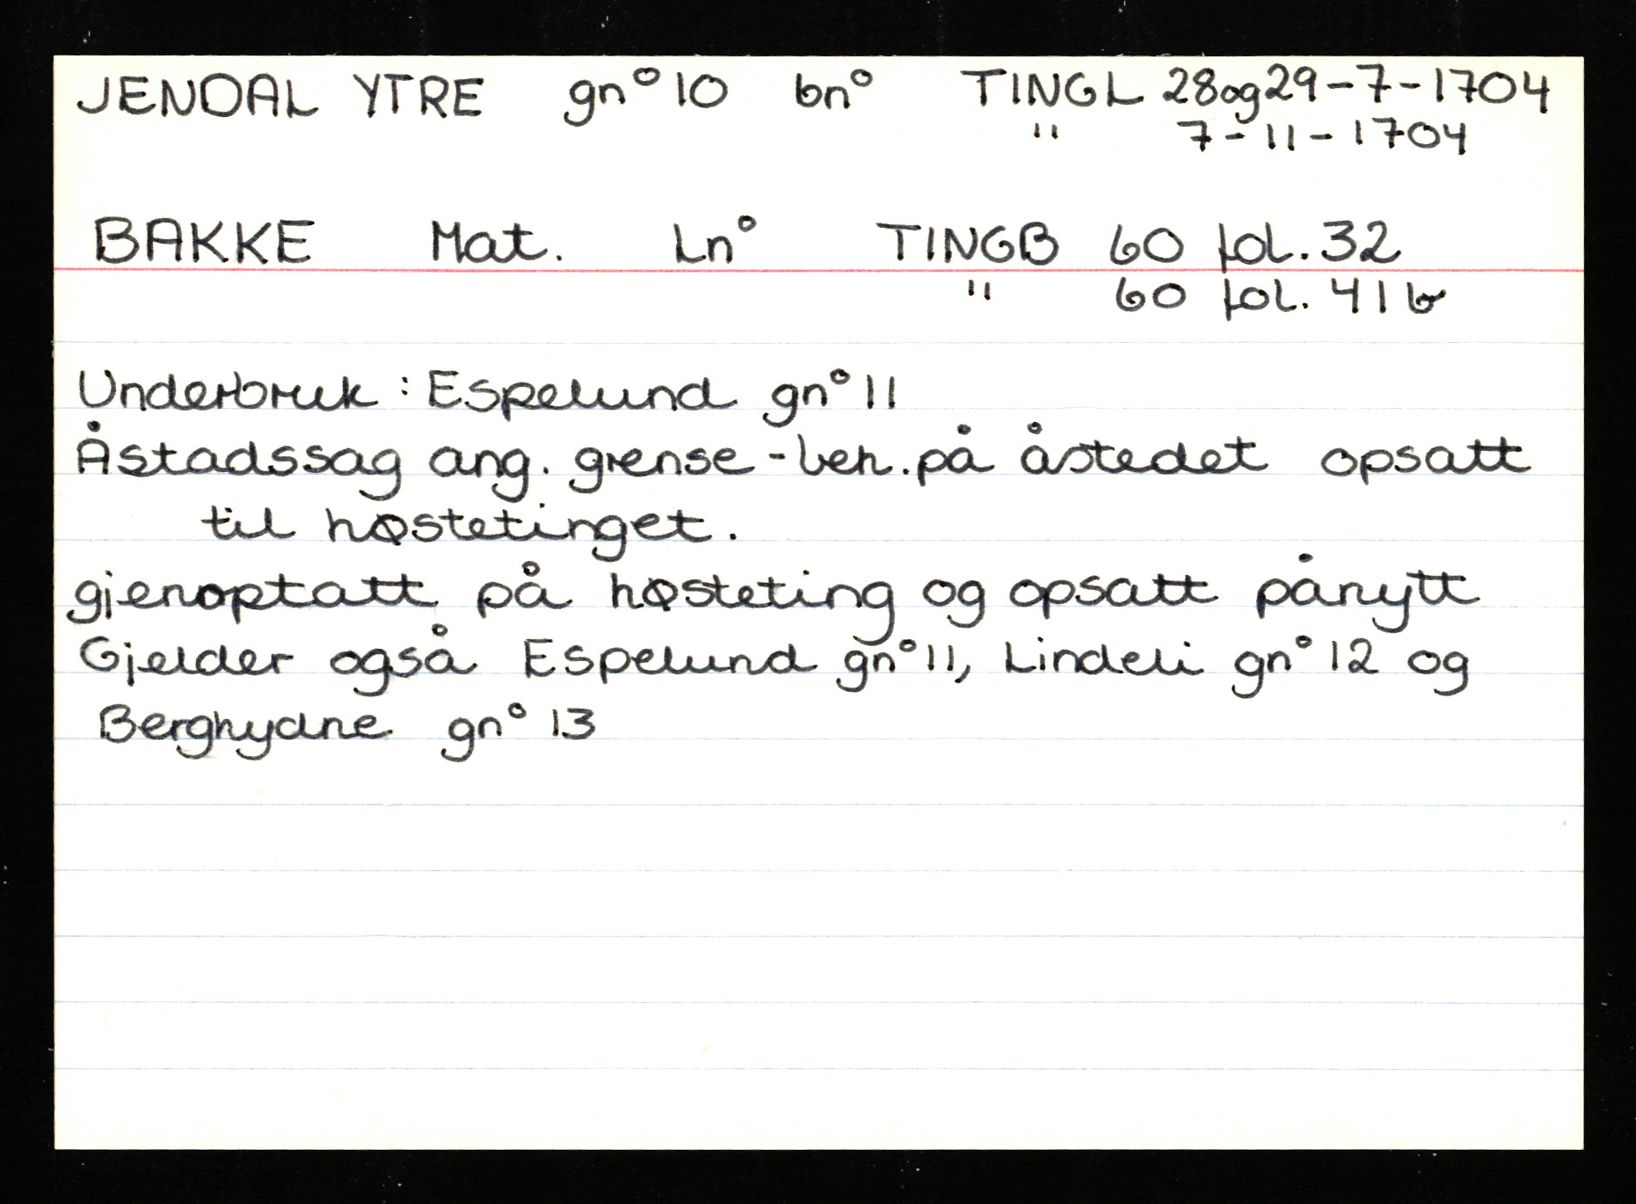 JENDAL YTRE gn° 10 bn° TINGL 28og29-7-1704
" 7-11-1704
BAKKE Mat. Ln° TINGB 60 fol. 32
" 60 fol. 41b
Underbruk : Espelund gn° 11
Åstadssag ang. grense - beh. på åstedet opsatt
til høstetinget.
gjenoptatt på høsteting og opsatt pånytt
Gjelder også Espelund gn° 11, Lindeli gn° 12 og
Berghydne gn° 13